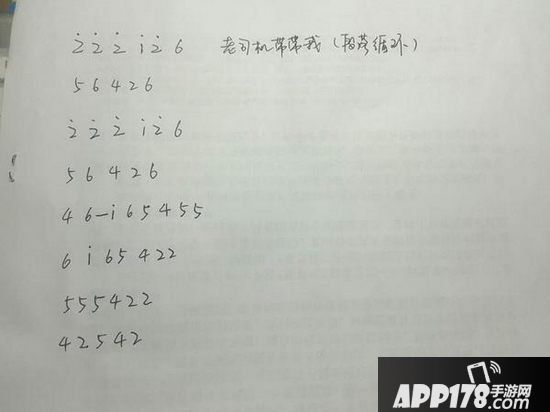 2̇ 2̇ 2̇ i 2̇ 6 老司机带带我（段落循环）
5 6 4 2 6
2̇ 2̇ 2̇ i 2̇ 6
5 6 4 2 6
4 6 — i 6 5 4 5 5
6 i 6 5 4 2 2
5 5 5 4 2 2
4 2 5 4 2
APP178手游网
.com